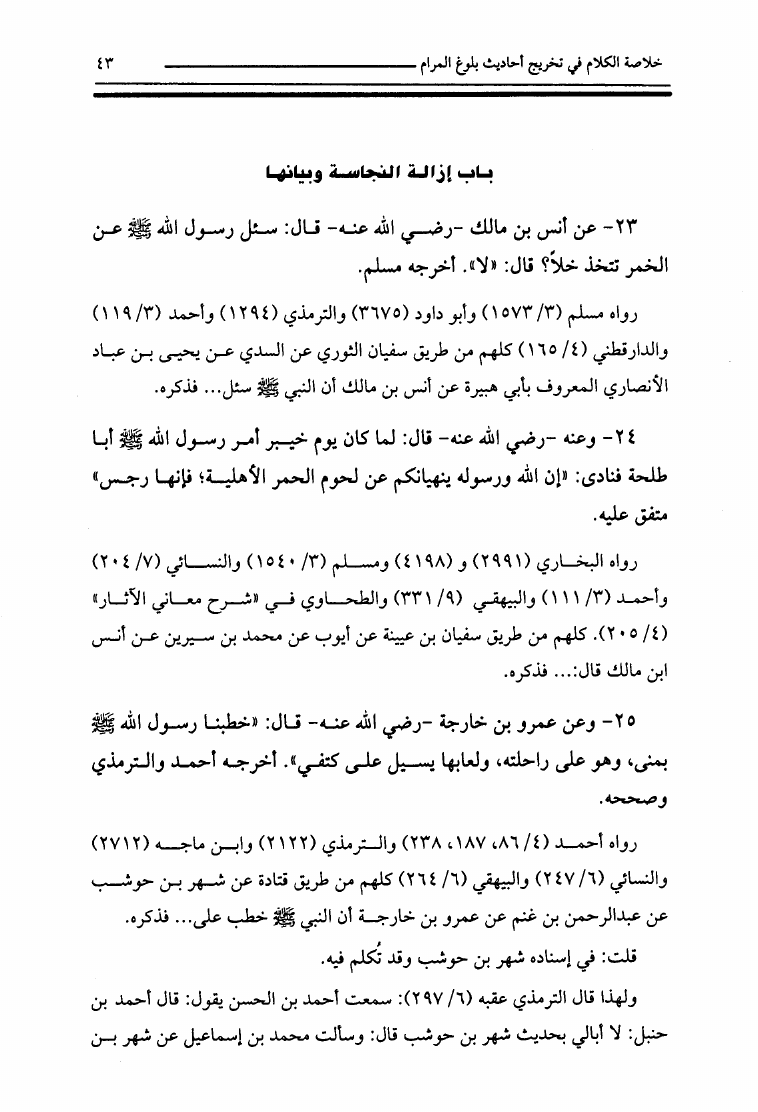 خلاصة الكلام في تخريج أحاديث بلوغ المرام ٤٣
باب إزالة النجاسة وبيانها
٢٣- عن أنس بن مالك -رضي الله عنه- قال: سئل رسول الله ﷺ عن
الخمر تتخذ خلاً؟ قال: «لا». أخرجه مسلم.
رواه مسلم (٣/ ١٥٧٣) وأبو داود (٣٦٧٥) والترمذي (١٢٩٤) وأحمد (٣/ ١١٩)
والدارقطني (٤/ ١٦٥) كلهم من طريق سفيان الثوري عن السدي عن يحيى بن عباد
الأنصاري المعروف بأبي هبيرة عن أنس بن مالك أن النبي ﷺ سئل... فذكره.
٢٤- وعنه -رضي الله عنه- قال: لما كان يوم خيبر أمر رسول الله ﷺ أبا
طلحة فنادى: «إن الله ورسوله ينهيانكم عن لحوم الحمر الأهلية؛ فإنها رجس»
متفق عليه.
رواه البخاري (٢٩٩١) و (٤١٩٨) ومسلم (٣/ ١٥٤٠) والنسائي (٧/ ٢٠٤)
وأحمد (٣/ ١١١) والبيهقي (٩/ ٣٣١) والطحاوي في «شرح معاني الآثار»
(٤/ ٢٠٥). كلهم من طريق سفيان بن عيينة عن أيوب عن محمد بن سيرين عن أنس
ابن مالك قال:... فذكره.
٢٥- وعن عمرو بن خارجة -رضي الله عنه- قال: «خطبنا رسول الله ﷺ
بمنى، وهو على راحلته، ولعابها يسيل على كتفي». أخرجه أحمد والترمذي
وصححه.
رواه أحمد (٤/ ٨٦، ١٨٧، ٢٣٨) والترمذي (٢١٢٢) وابن ماجه (٢٧١٢)
والنسائي (٦/ ٢٤٧) والبيهقي (٦/ ٢٦٤) كلهم من طريق قتادة عن شهر بن حوشب
عن عبدالرحمن بن غنم عن عمرو بن خارجة أن النبي ﷺ خطب على... فذكره.
قلت: في إسناده شهر بن حوشب وقد تُكلم فيه.
ولهذا قال الترمذي عقبه (٦/ ٢٩٧): سمعت أحمد بن الحسن يقول: قال أحمد بن
حنبل: لا أبالي بحديث شهر بن حوشب قال: وسألت محمد بن إسماعيل عن شهر بن